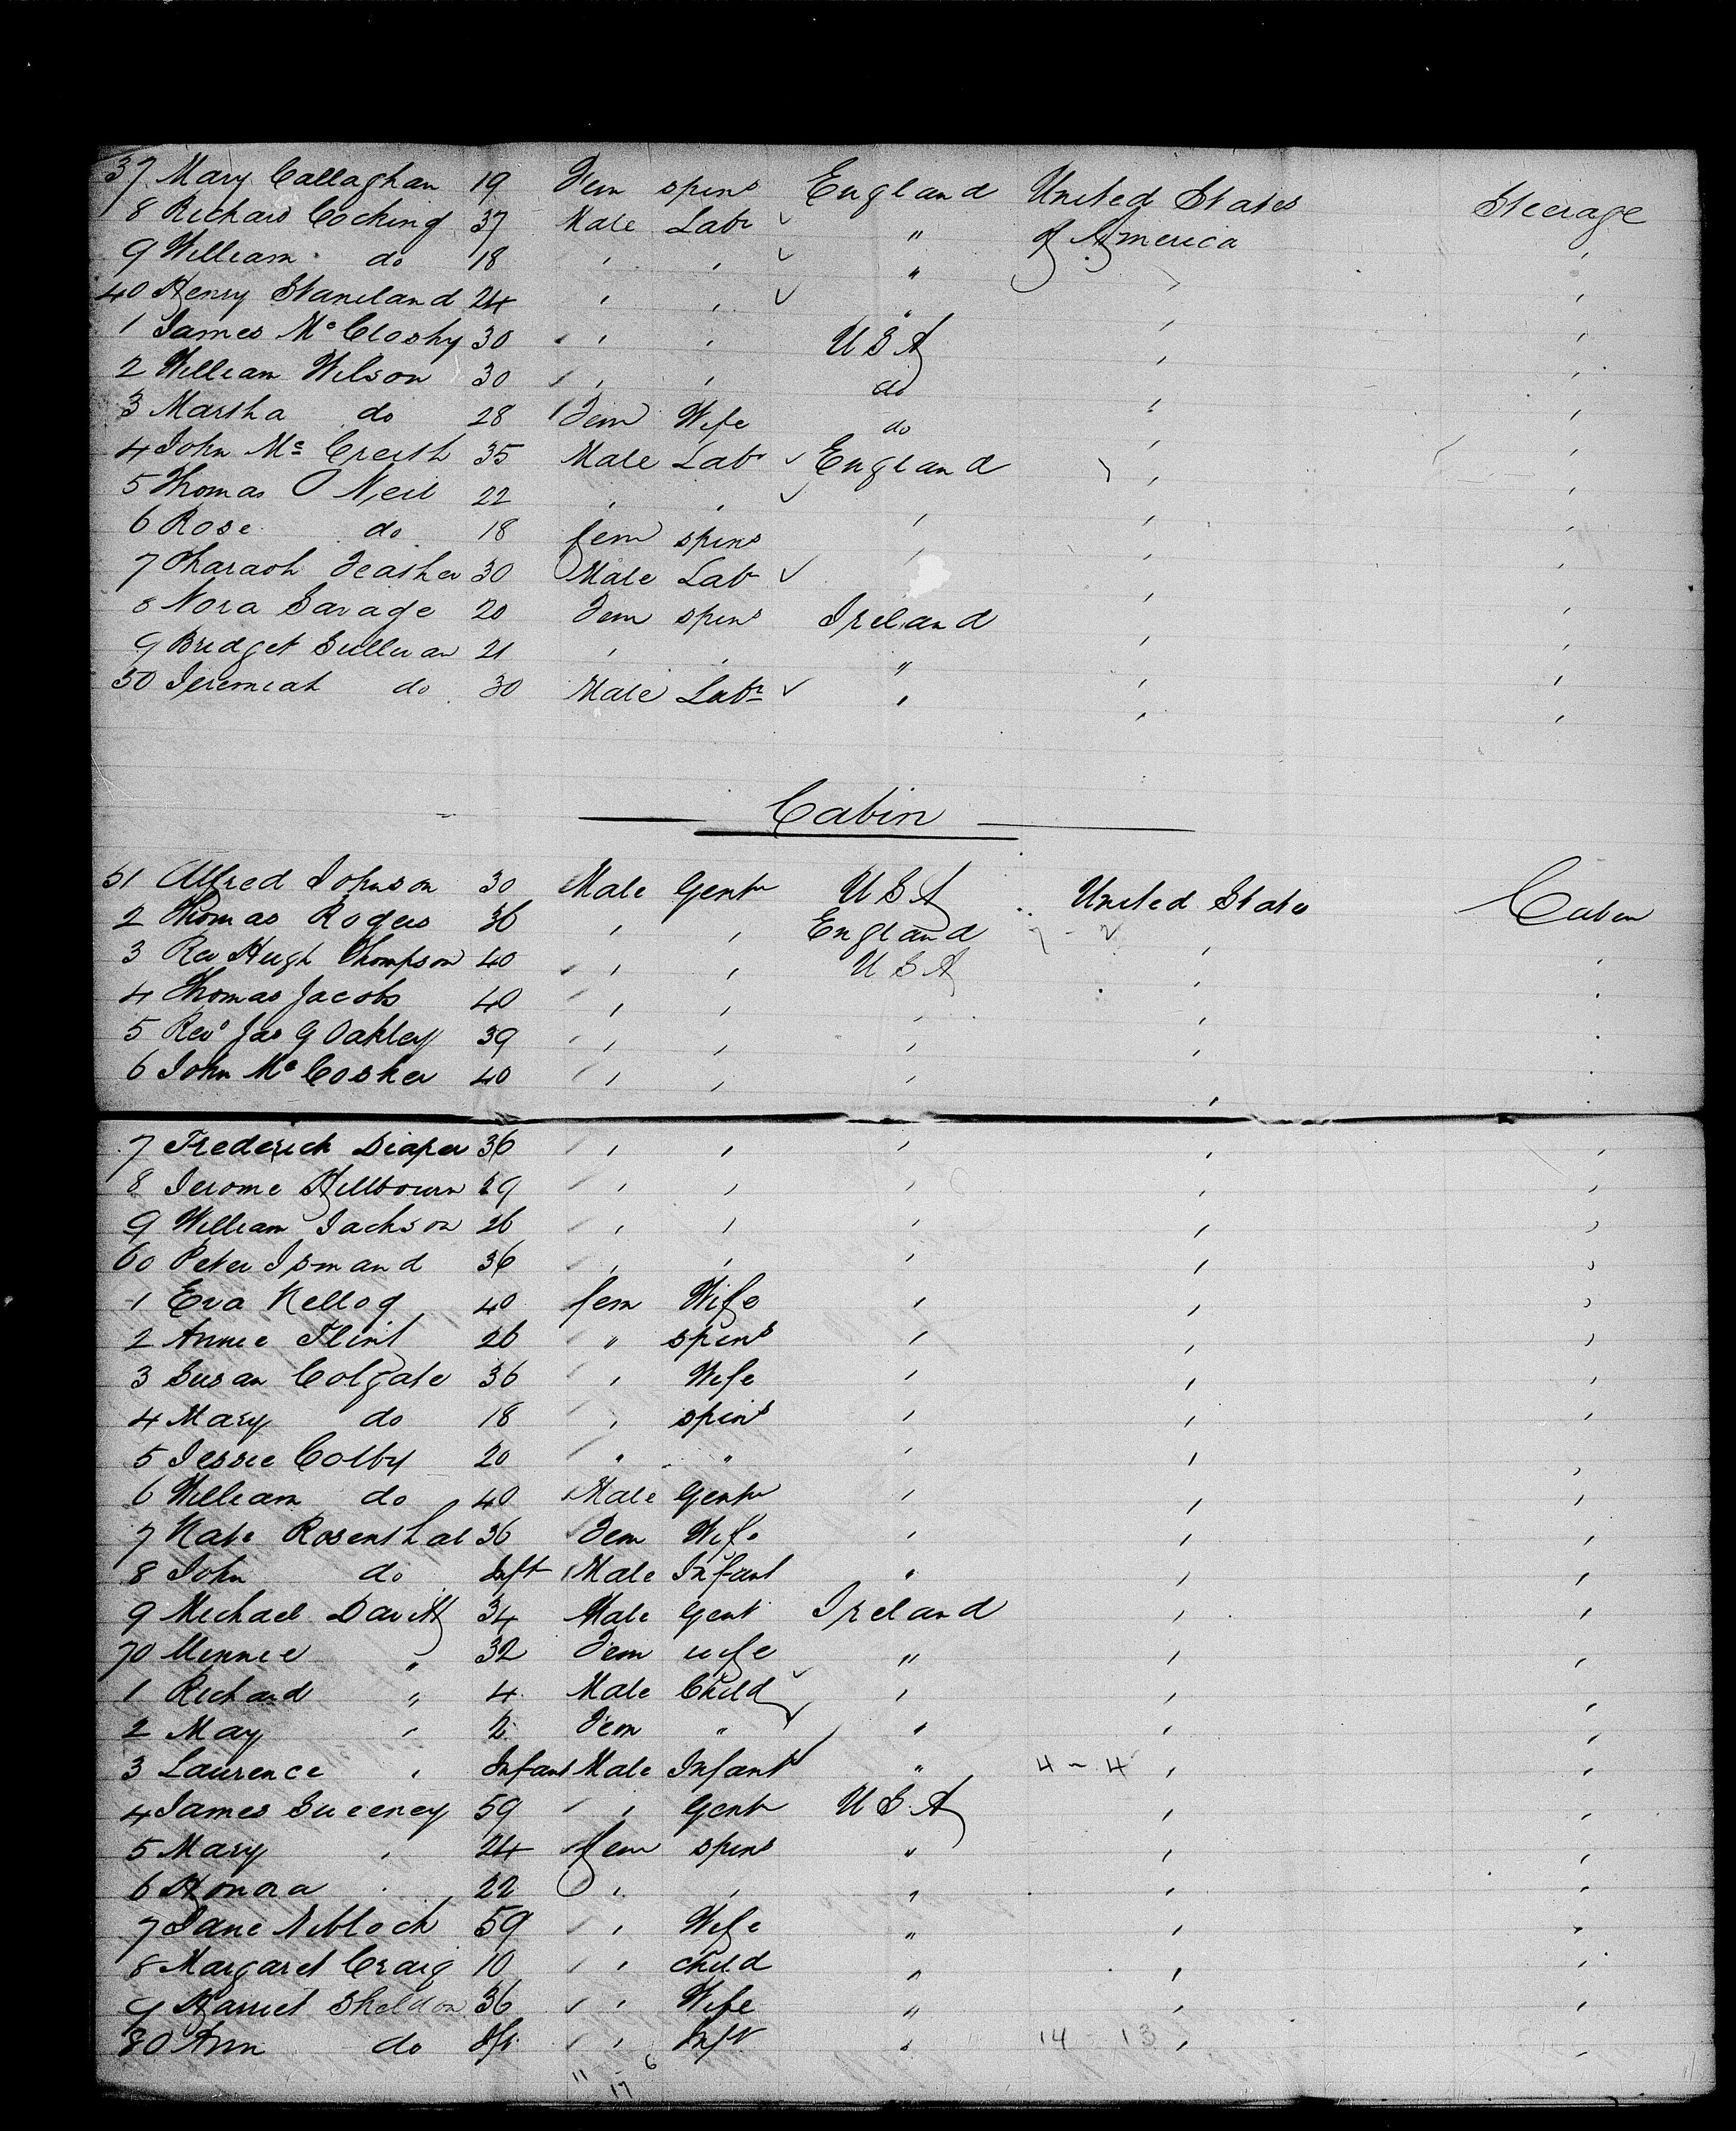 37 Mary Callaghan 19 Fem spins England United States Steerage
8 Richard Cocking 37 Male Labr ✓ " of America '
9 William do 18 ' ' ✓ " ' '
40 Henry Staneland 24 ' ' ✓ " ' '
1 James McClosky 30 ' ' U S A ' '
2 William Wilson 30 ' ' do ' '
3 Martha do 28 Fem Wife do ' '
4 John Mc Creith 35 Male Labr ✓ England ' '
5 Thomas O Neil 22 ' ' ✓ ' ' '
6 Rose do 18 fem spins ' ' '
7 Pharaoh Feather 30 Male Labr ✓ ' '
8 Nora Savage 20 Fem spins Ireland ' '
9 Bridget Sullivan 21 ' ' " ' '
50 Jeremiah do 30 Male Labr ✓ " ' '
Cabin
51 Alfred Johnson 30 Male Gentn U S A United States Cabin
2 Thomas Rogers 36 ' ' England ' '
3 Rev Hugh Thompson 40 ' ' U S A ' '
4 Thomas Jacobs 40 ' ' ' ' '
5 Revd Jas G Oakley 39 ' ' ' ' '
6 John McCosker 40 ' ' ' ' '
7 Frederick Diaper 36 ' ' ' ' '
8 Jerome Hillbourn 29 ' ' ' ' '
9 William Jackson 26 ' ' ' ' '
60 Peter Ismand 36 ' ' ' ' '
1 Eva Kellog 40 fem Wife ' ' '
2 Annie Flint 26 " spins ' ' '
3 Susan Colgate 36 ' Wife ' ' '
4 Mary do 18 ' spins ' ' '
5 Jessie Colby 20 " " ' ' '
6 William do 40 Male Gentn ' ' '
7 Kate Rosenthal 36 Fem Wife ' ' '
8 John do Inft Male Infant ' ' '
9 Michael Davitt 34 Male Gent Ireland ' '
70 Minnie " 32 Fem wife " ' '
1 Richard " 4 Male Child ✓ ' ' '
2 May ' 2 Fem " ✓ ' ' '
3 Laurence ' Infant Male Infant ✓ " 4 - 4 ' '
4 James Sweeney 59 ' Gentn U S A ' '
5 Mary ' 24 fem spins " ' '
6 Honora ' 22 ' ' ' ' '
7 Jane Niblock 59 ' Wife " ' '
8 Margaret Craig 10 ' child " ' '
9 Harriet Sheldon 36 ' Wife " ' '
80 Ann do Ift ' Inft " 14 - 13 ' '
11 6
17